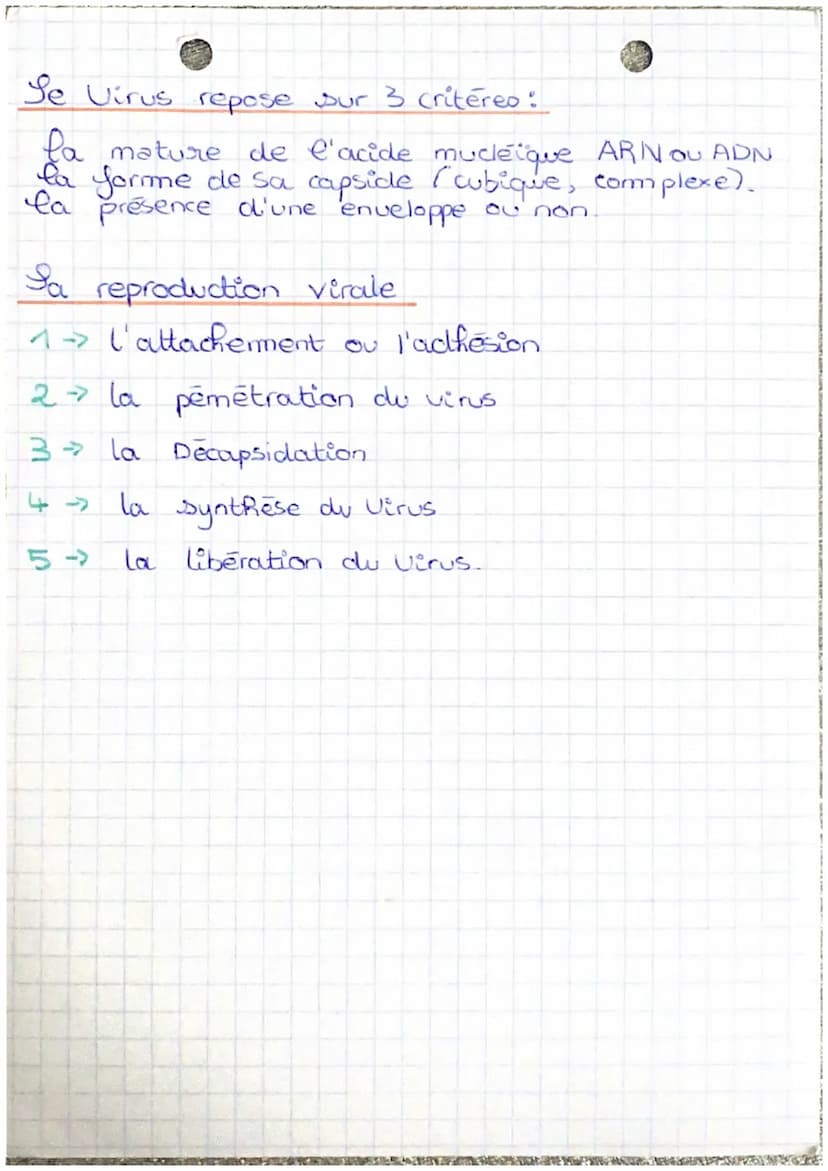 Le Virus repose sur 3 critères :
la nature de l'acide nucléique ARN ou ADN
la forme de sa capside (cubique, complexe).
la présence d'une enveloppe ou non.
La reproduction virale
1 → l'attachement ou l'adhésion
2 → la pénétration du virus
3 → la Décapsidation
4 → la synthèse du Virus
5 → la libération du Virus.